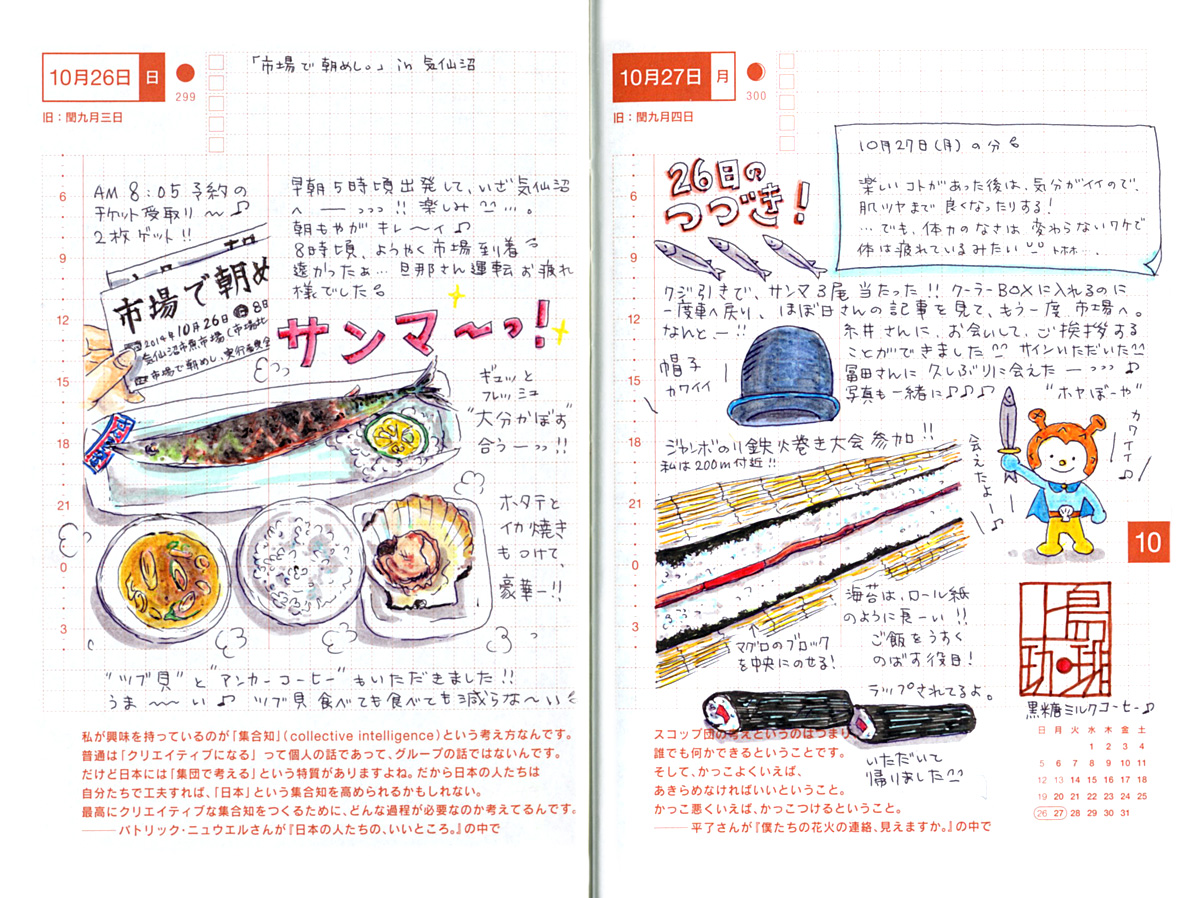 10月26日 日
299
旧：閏九月三日
「市場で朝めし。」 in 気仙沼
AM 8:05 予約の
チケット受取り 〜♪
2枚ゲット!!
早朝5時頃出発して、いざ気仙沼
へ ーっっっ!! 楽しみ ^^ …。
朝もやが キレーイ♪
8時頃、ようやく市場到着
遠かったぁ… 旦那さん運転お疲れ
様でした
市場で朝め
2014年10月26日 8日
気仙沼市魚市場(市場北
市場で朝めし。実行委員会
サンマ〜っ!
ギュッと
フレッシュ
"大分かぼす"
合うーっっ!!
ホタテと
イカ焼き
もつけて、
豪華ー!!
"ツブ貝" と "アンカーコーヒー" もいただきました!!
うま 〜〜 い ♪ ツブ貝 食べても食べても減らな〜い
6
9
12
15
18
21
0
3
私が興味を持っているのが「集合知」（collective intelligence）という考え方なんです。
普通は「クリエイティブになる」って個人の話であって、グループの話ではないんです。
だけど日本には「集団で考える」という特質がありますよね。だから日本の人たちは
自分たちで工夫すれば、「日本」という集合知を高められるかもしれない。
最高にクリエイティブな集合知をつくるために、どんな過程が必要なのか考えてるんです。
――パトリック・ニュウエルさんが『日本の人たちの、いいところ。』の中で
10月27日 月
300
旧：閏九月四日
10月27日(月)の分
楽しいコトがあった後は、気分がイイので、
肌ツヤまで良くなったりする!
…でも、体力のなさは、変わらないワケで
体は疲れているみたい トホホ…。
26日の
つづき!
クジ引きで、サンマ3尾 当たった!! クーラーBOXに入れるのに
一度車へ戻り、ほぼ日さんの記事を見て、もう一度 市場へ。
なんと、ー!! 糸井さんに、お会いして、ご挨拶する
ことができました ^^ サインいただいた ^^
冨田さんに 久しぶりに会えた ーっっっ ♪
写真も一緒に♪♪♪
帽子
カワイイ
"ホヤぼーや"
カワイイ♪
会えたよー♪
ジャンボのり鉄火巻き大会 参加!!
私は200m付近!!
マグロのブロック
を中央にのせる!
海苔は、ロール紙
のように長ーい!!
ご飯をうすく
のばす役目!
ラップされてるよ。
いただいて
帰りました ^^
上島
珈琲
黒糖ミルクコーヒー♪
6
9
12
15
18
21
0
3
10
スコップ団の考えというのはつまり
誰でも何かできるということです。
そして、かっこよくいえば、
あきらめなければいいということ。
かっこ悪くいえば、かっこつけるということ。
――平了さんが『僕たちの花火の連絡、見えますか。』の中で
日 月 火 水 木 金 土
1 2 3 4
5 6 7 8 9 10 11
12 13 14 15 16 17 18
19 20 21 22 23 24 25
26 27 28 29 30 31